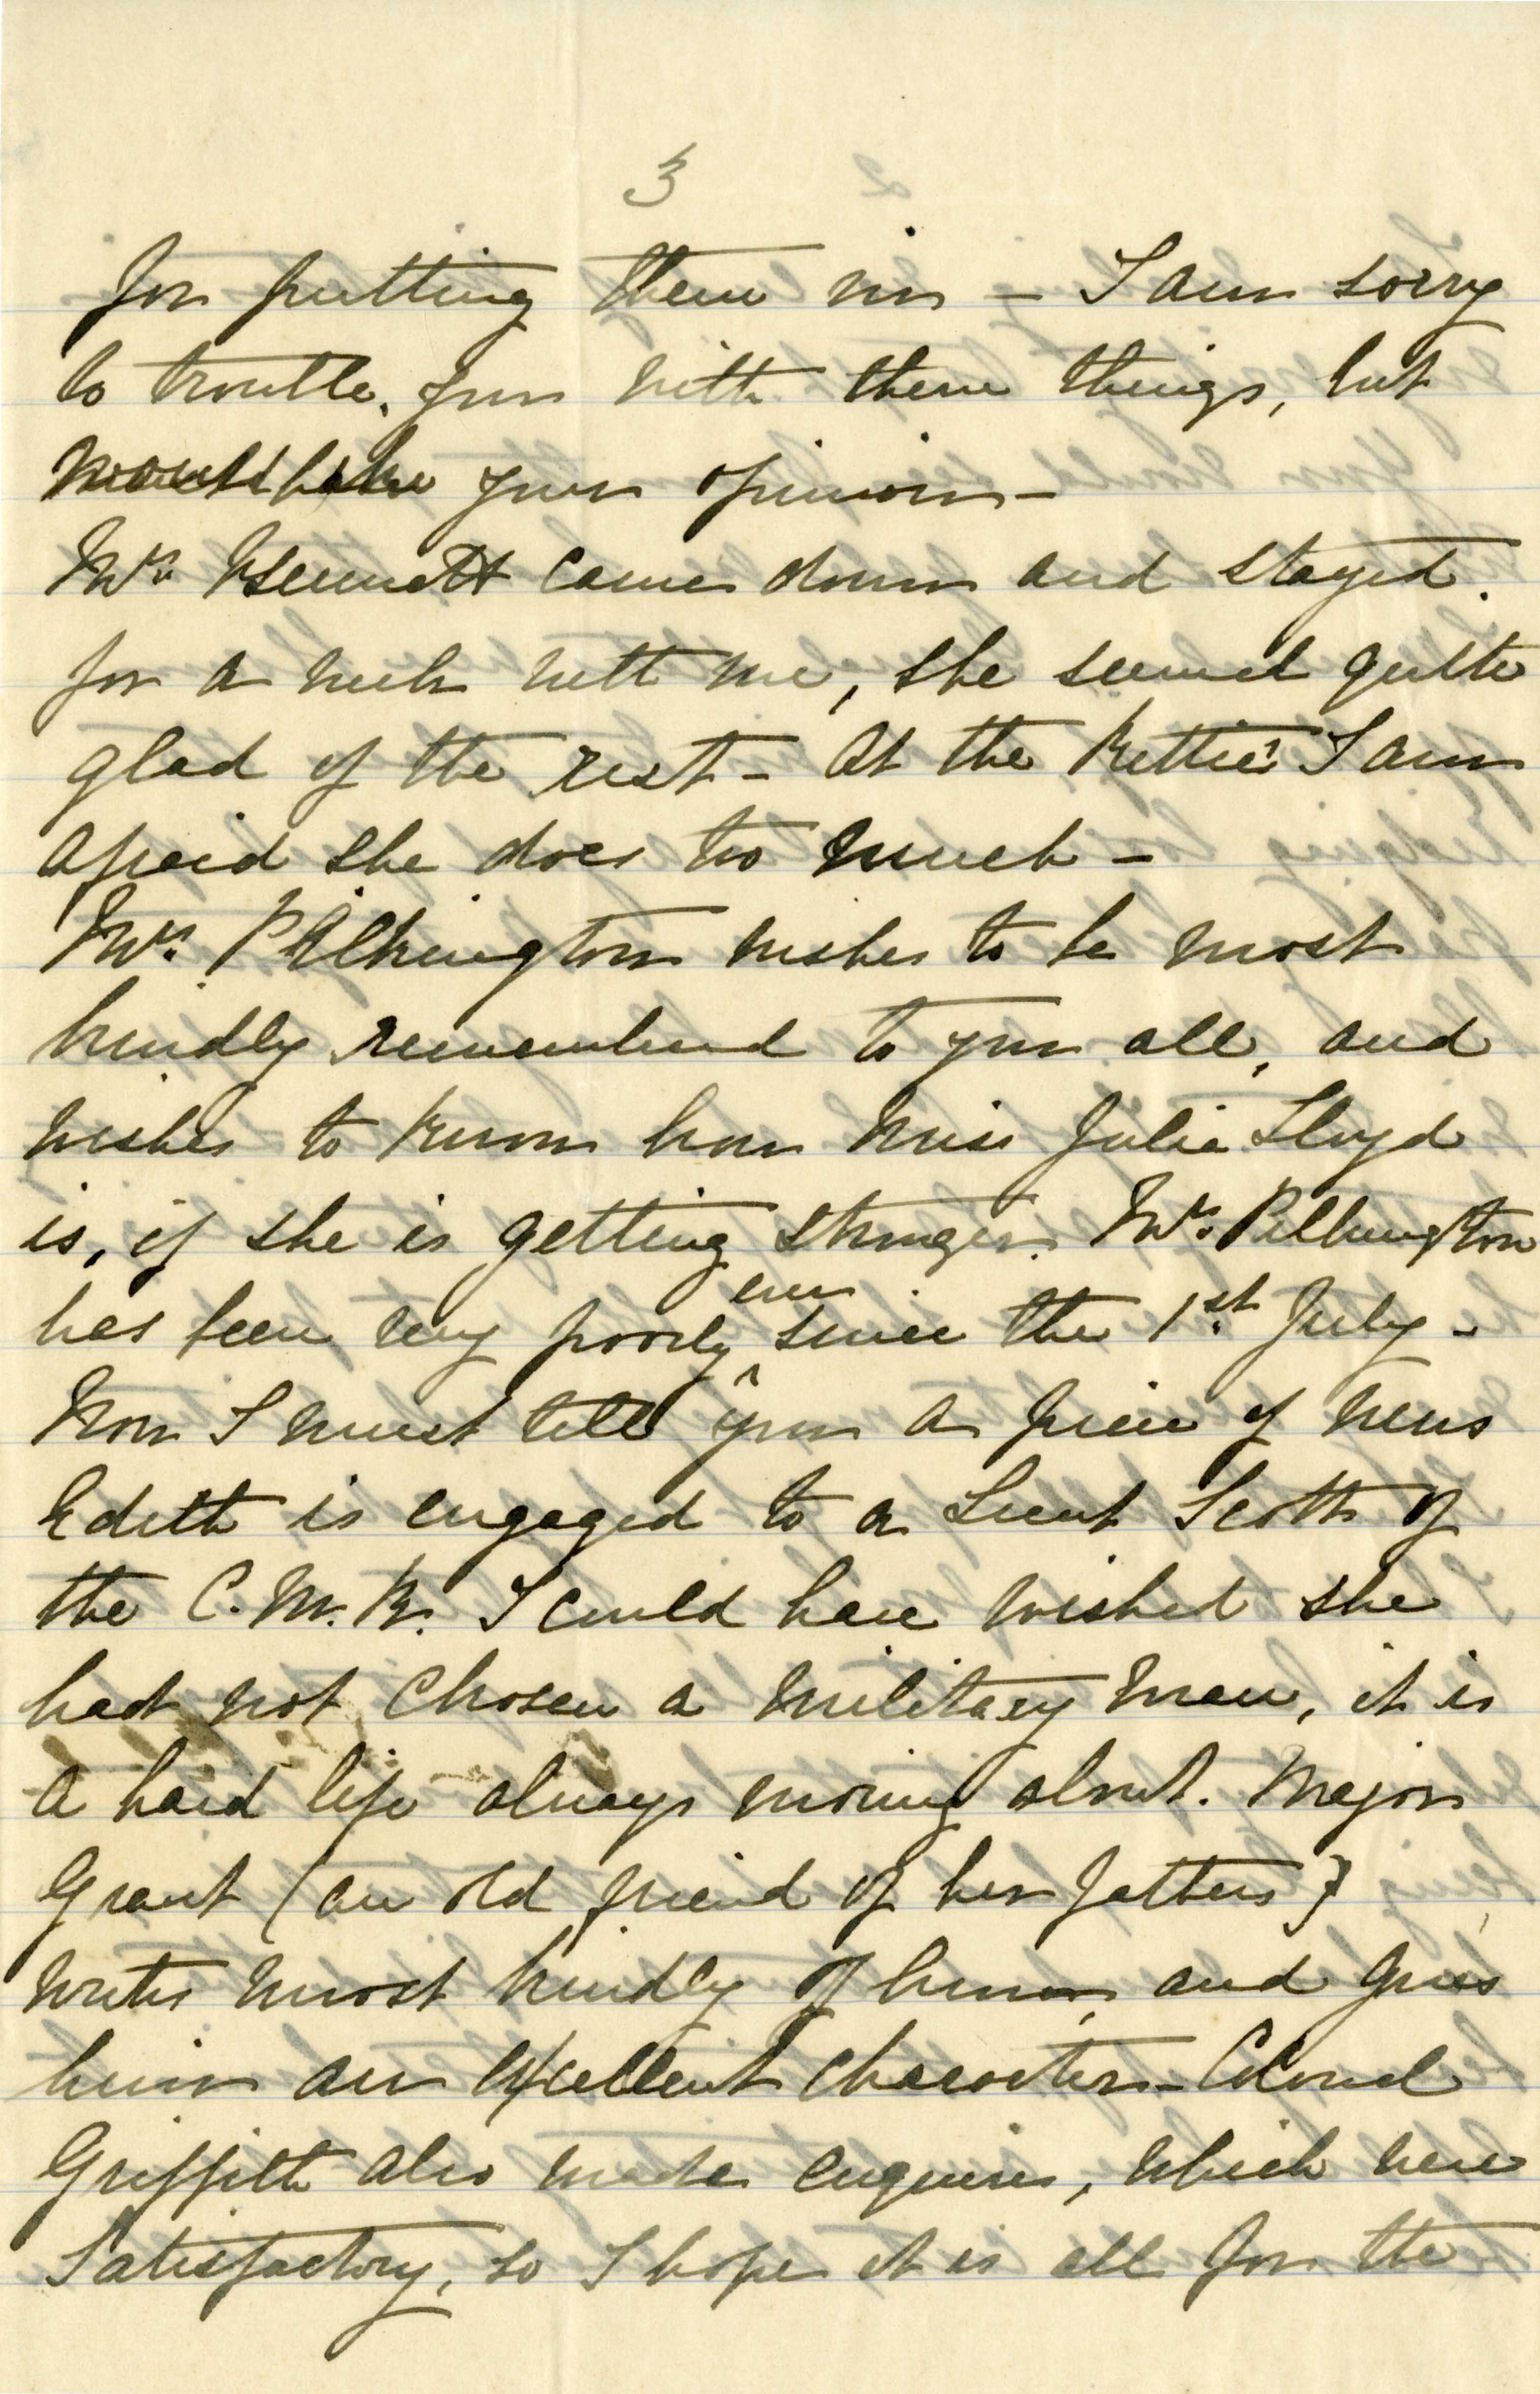 3
for putting them in – I am sorry
to trouble you with these things, but
would like your opinion –
Mrs. Bennett came down and stayed
for a week with me, she seemed quite
glad of the rest – At the Kettie's I am
afraid she does too much –
Mrs. Pilkington wishes to be most
kindly remembered to you all, and
wishes to know how Miss Julia Lloyd
is, if she is getting stronger. Mrs. Pilkington
has been very poorly ever since the 1st July –
Now I must tell you a piece of news
Edith is engaged to a Lieut Scott of
the C. M. R. I could have wished she
had not chosen a military man, it is
a hard life always moving about. Major
Grant (an old friend of her fathers)
writes most kindly of him, and gives
him an excellent character – Colonel
Griffith also made enquiries, which were
Satisfactory, so I hope it is all for the